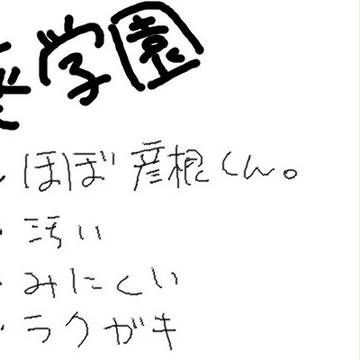 学園
ほぼ彦根くん。
・汚い
・みにくい
・ラクガキ